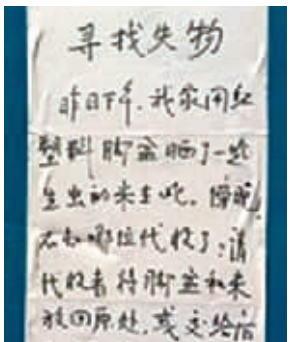 寻找失物
昨日下午,我家用红
塑料脚盆晒了一些
生虫的米在此,傍晚
不知哪位代收了;请
代收者将脚盆和米
放回原处,或交给